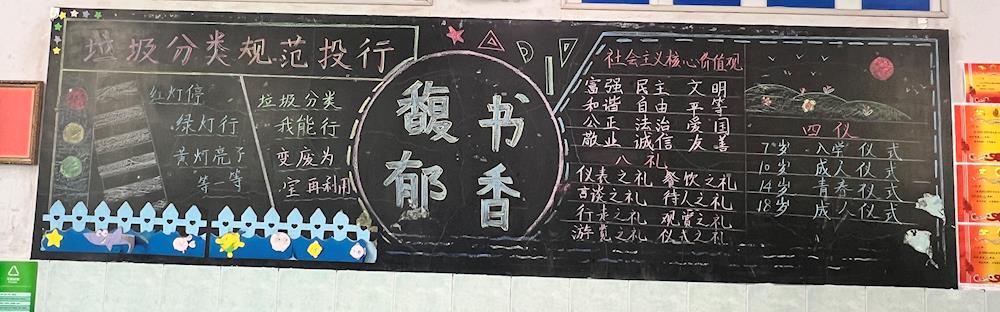 垃圾分类规范投行
红灯停
绿灯行
黄灯亮了
等一等
垃圾分类
我能行
变废为
宝再利用
书香
馥郁
社会主义核心价值观
富强 民主 文明
和谐 自由 平等
公正 法治 爱国
敬业 诚信 友善
八礼
仪表之礼 餐饮之礼
言谈之礼 待人之礼
行走之礼 观赏之礼
游览之礼 仪式之礼
四仪
7岁 入学仪式
10岁 成人仪式
14岁 青春仪式
18岁 成人仪式